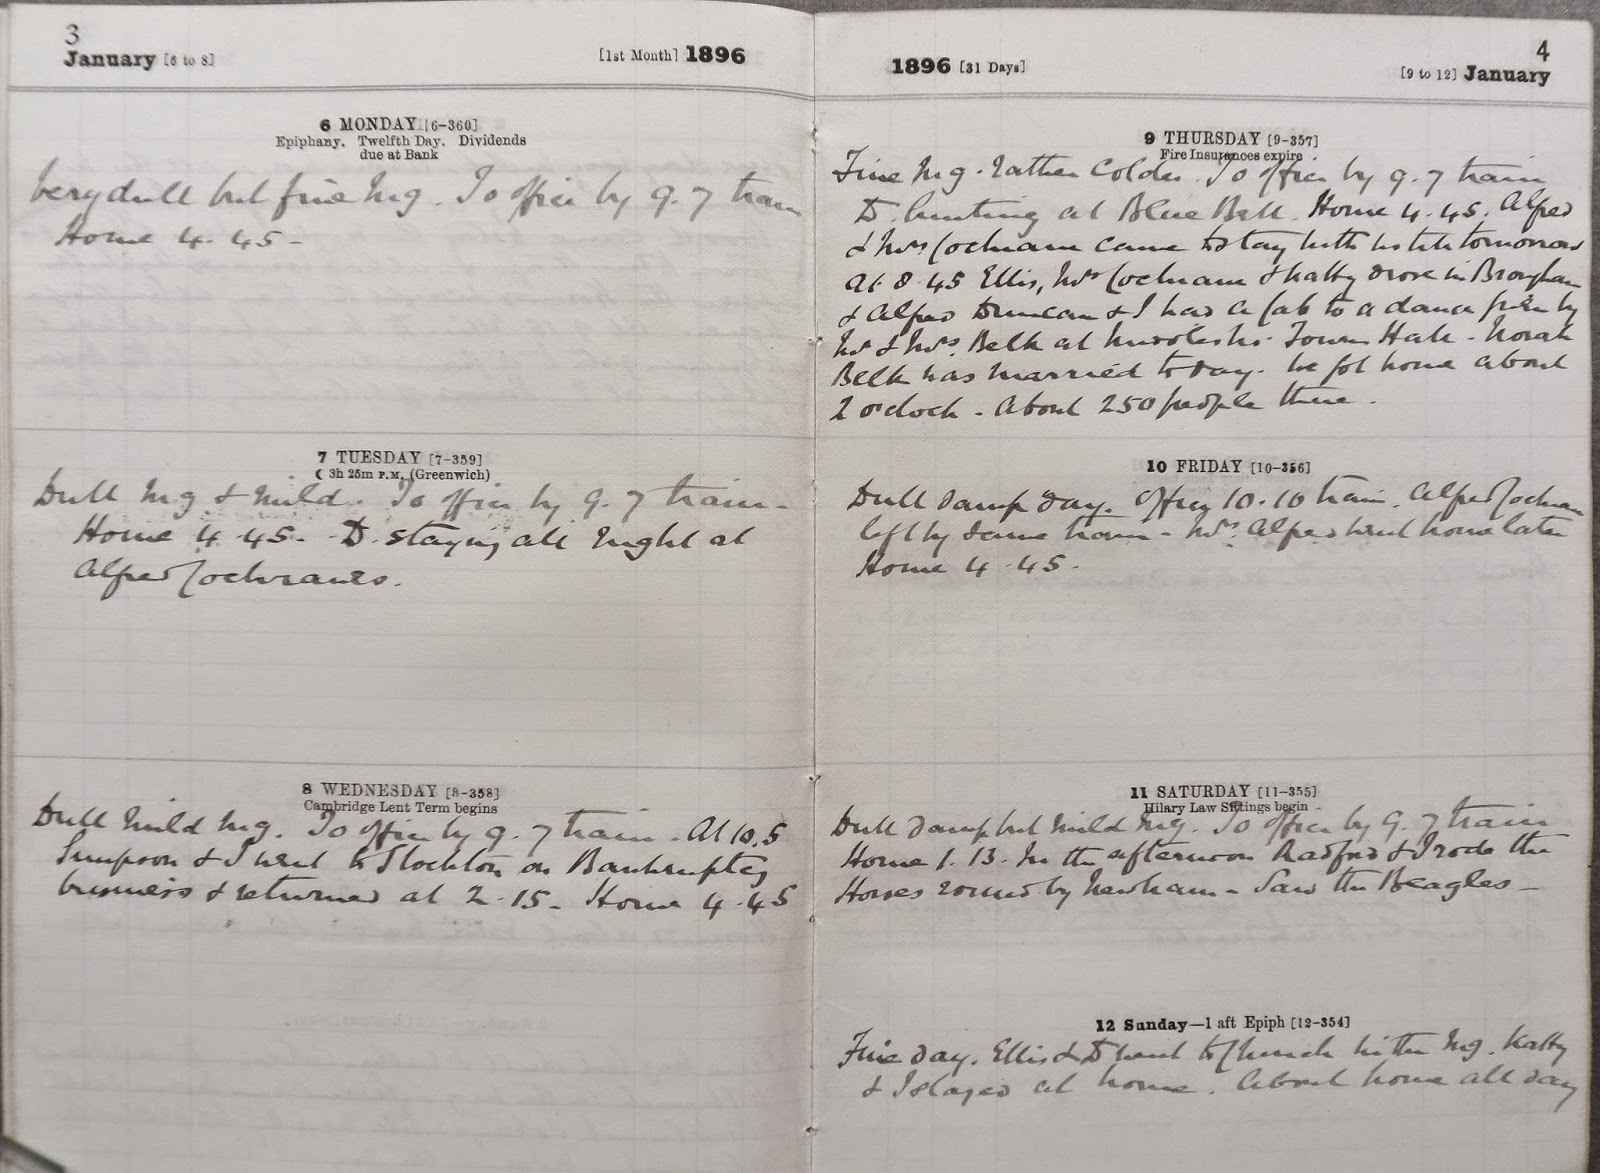 3
January [6 to 8] [1st Month] 1896
6 MONDAY [6-360]
Epiphany. Twelfth Day. Dividends
due at Bank
Very dull but fine Mg. To office by 9.7 train
Home 4.45 -
7 TUESDAY [7-359]
☾ 3h 25m P.M. (Greenwich)
Dull Mg & Mild. To office by 9.7 train -
Home 4.45 - D. staying all night at
Alfred Cochranes.
8 WEDNESDAY [8-358]
Cambridge Lent Term begins
Dull Mild Mg. To office by 9.7 train. At 10.5
Simpson & I went to Stockton on Bankruptcy
business & returned at 2.15 - Home 4.45
4
1896 [31 Days] [9 to 12] January
9 THURSDAY [9-357]
Fire Insurances expire
Fine Mg. rather colder. To office by 9.7 train
D. hunting at Blue Bell. Home 4.45. Alfred
& Mrs Cochrane came to stay with us till tomorrow
At 8.45 Ellis, Mrs Cochrane & Katty drove in Brougham
& Alfred Duncan & I had a Cab to a dance given by
Mr & Mrs. Belk at Town Hall - Norah
Belk was married today. We got home about
2 o'clock - About 250 people there.
10 FRIDAY [10-356]
Dull damp day. Office 10.10 train. Alfred Cochrane
left by same train - Mrs. Alfred went home later
Home 4.45.
11 SATURDAY [11-355]
Hilary Law Sittings begin
Dull damp but mild Mg. To office by 9.7 train
Home 1.13. In the afternoon Radford & I rode the
Horses round by Newham - Saw the Beagles -
12 Sunday—1 aft Epiph [12-354]
Fine day. Ellis & D went to Church in the Mg. Katty
& I stayed at home. About home all day